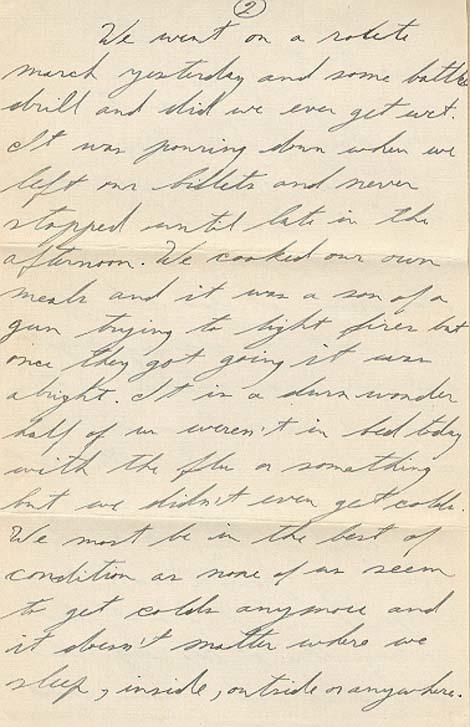 2
We went on a rotute
march yesterday and some battle
drill and did we ever get wet.
It was pouring down when we
left our billets and never
stopped until late in the
afternoon. We cooked our own
meals and it was a son of a
gun trying to light fires but
once they got going it was
alright. It is a durn wonder
half of us weren't in bed today
with the flu or something
but we didn't even get colds.
We most be in the best of
condition as none of us seem
to get colds anymore and
it doesn't matter where we
sleep, inside, outside or anywhere.